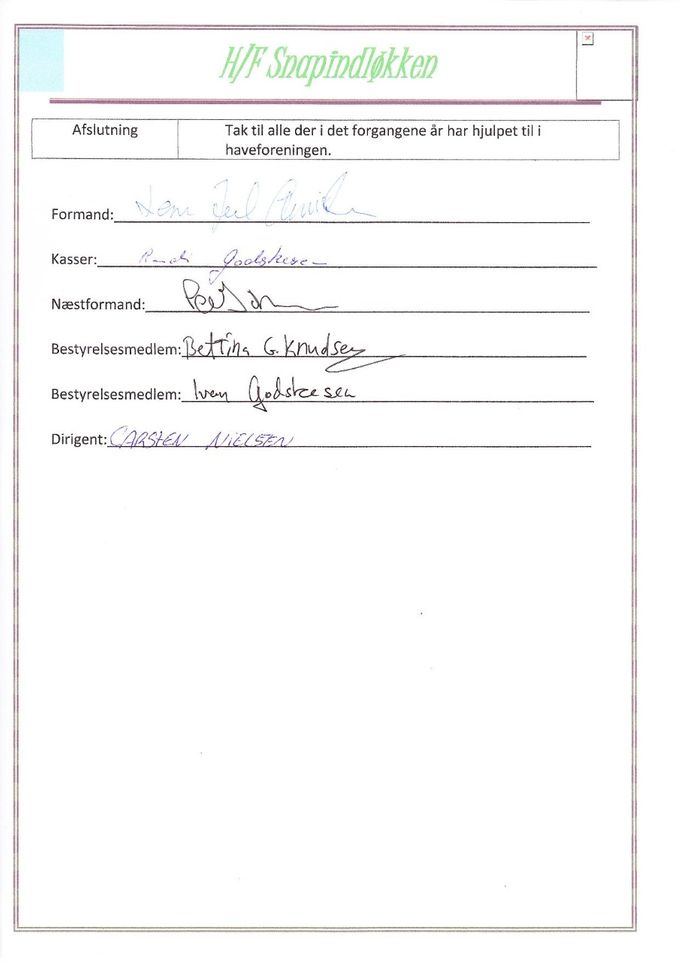 H/F Snapindløkken
Afslutning
Tak til alle der i det forgangene år har hjulpet til i
haveforeningen.
Formand:
Kasser: Godskesen
Næstformand:
Bestyrelsesmedlem: Bettina G. Knudsen
Bestyrelsesmedlem: Ivan Godskesen
Dirigent: CARSTEN NIELSEN